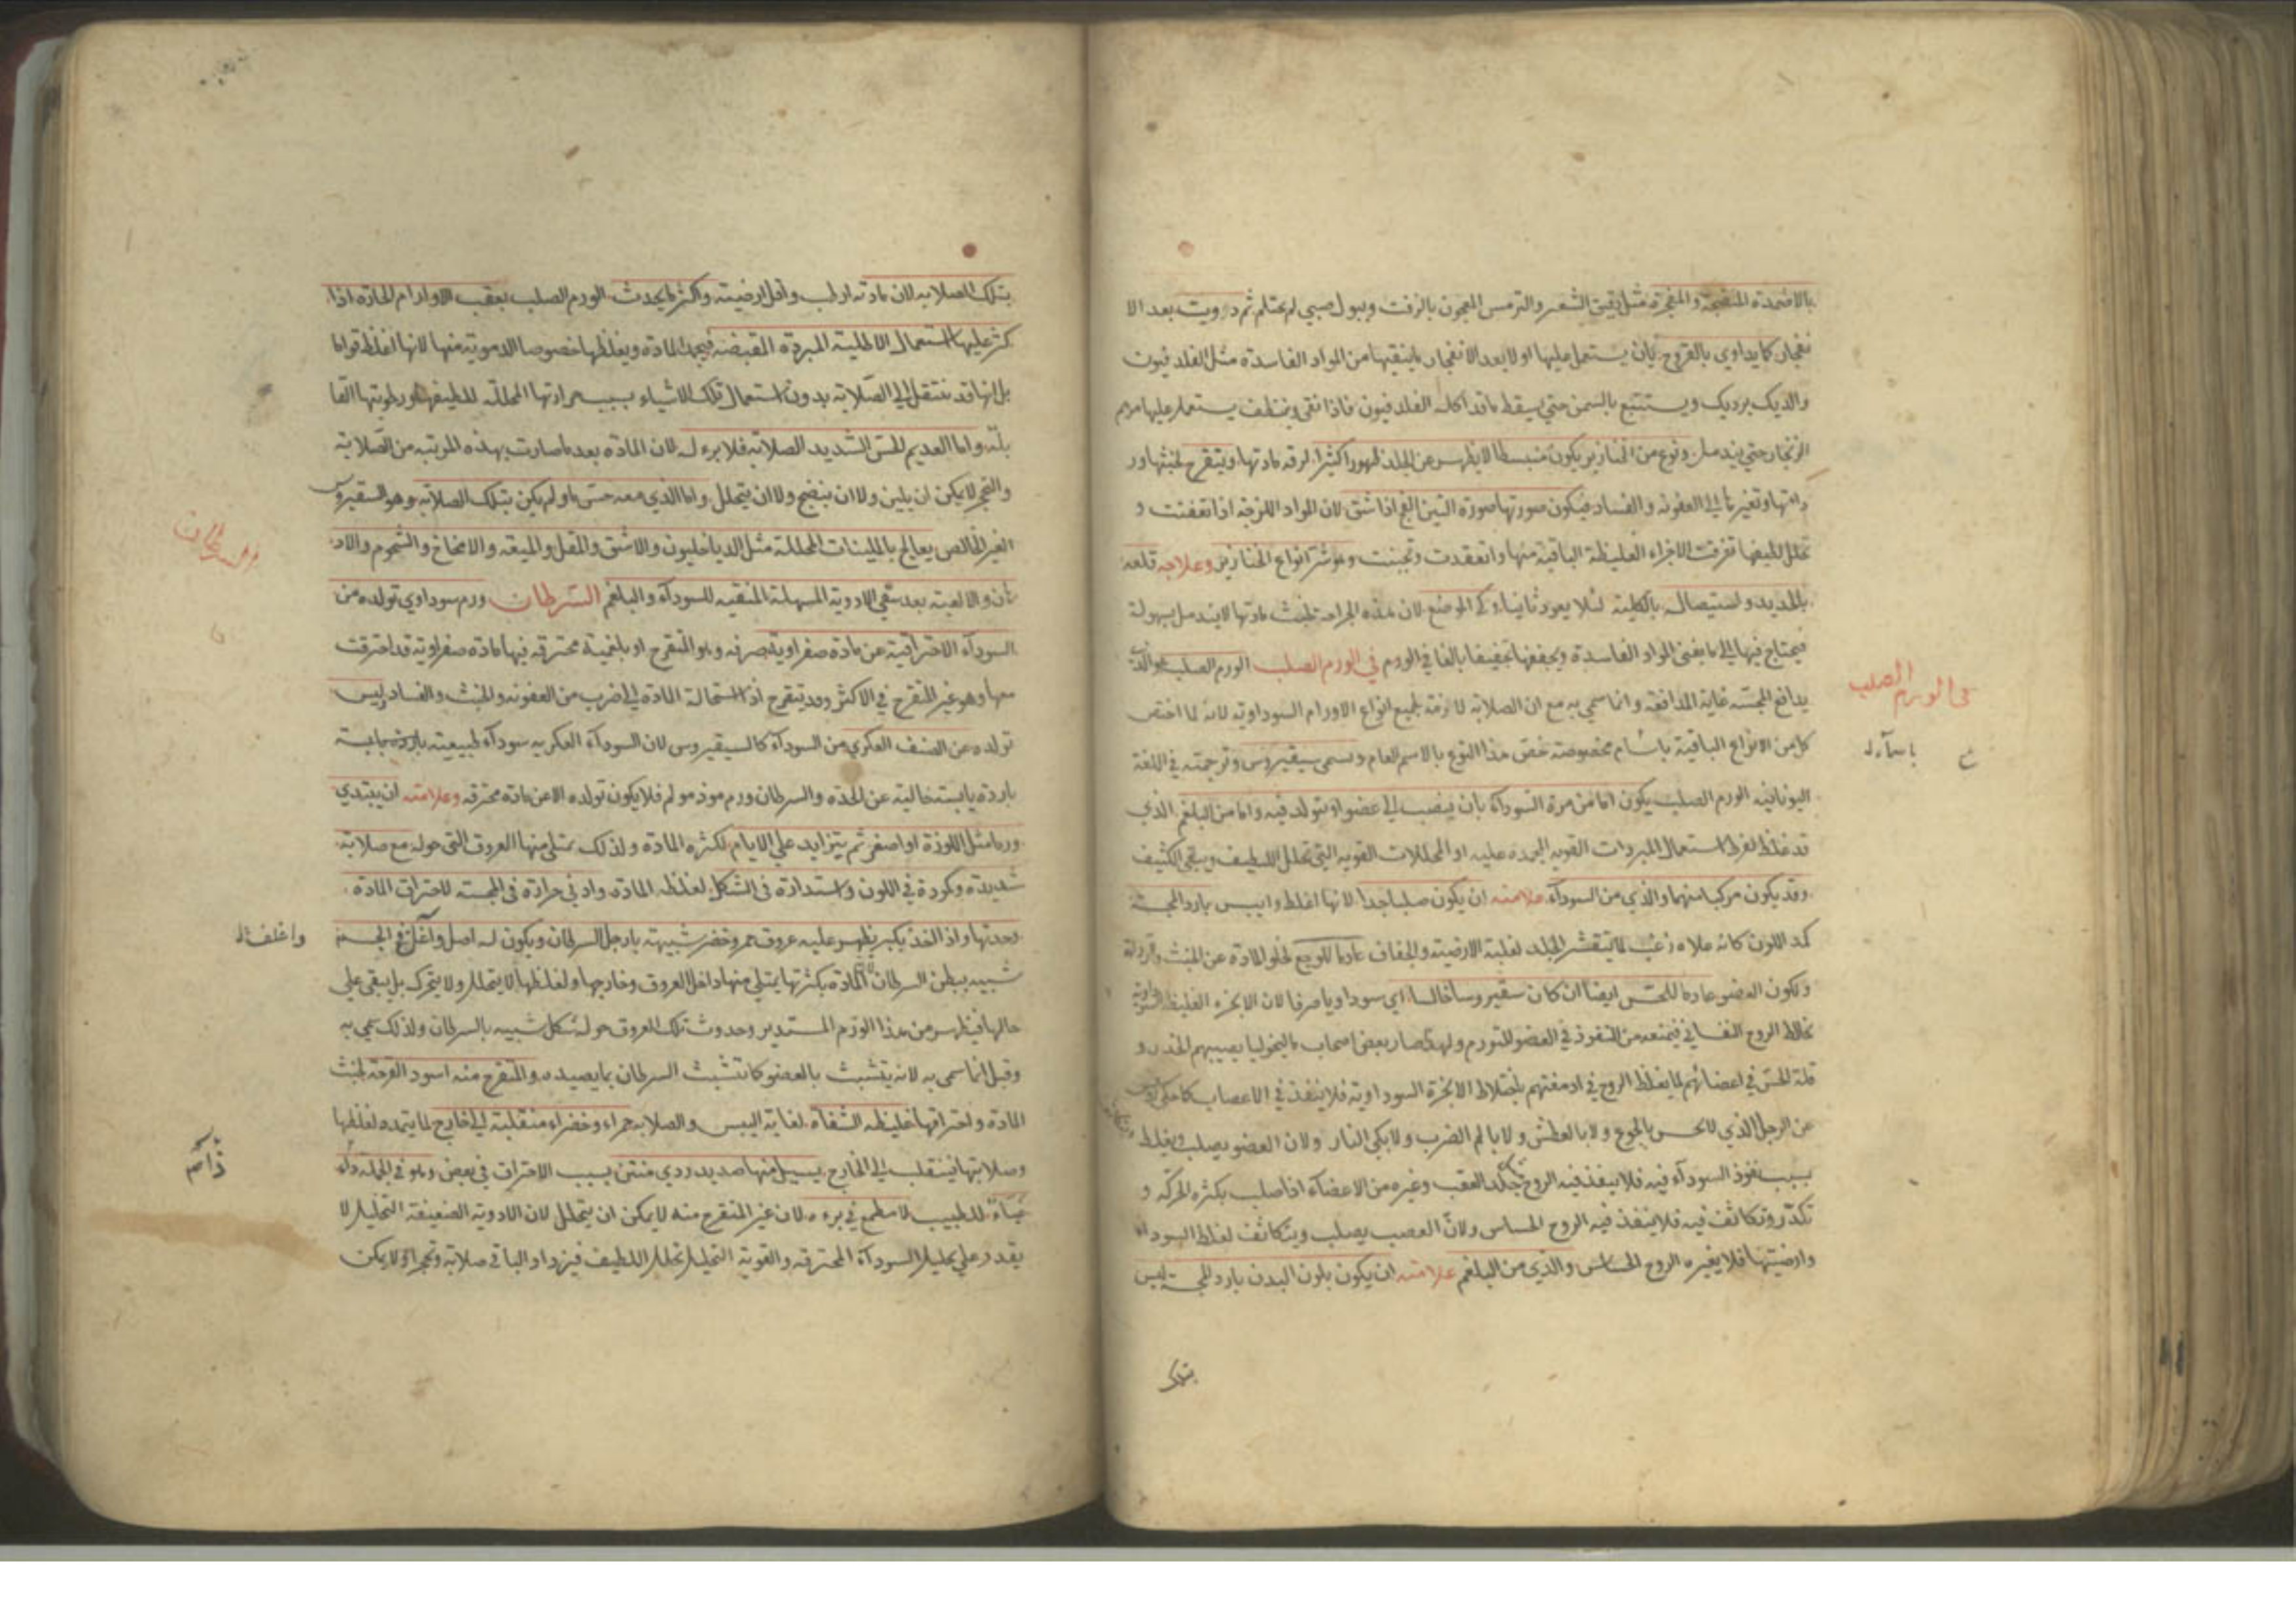 بالاضمدة المنضجة والمفجرة مثل دقيق الشعير والترمس المعجون بالزفت وببول صبي لم يحتلم ثم دوويت بعد الا
نفجار كما يداوي بالقروح بان يستعمل عليها اولا بعد الانفجار ما ينقيها من المواد الفاسدة مثل الفلدفيون
والديك برديك ويستتبع بالسمن حتي يسقط ما قد اكله الفلدفيون فاذا نقي ونظف يستعمل عليها مرهم
الزنجار حتي يندمل ونوع من الخنازير يكون منبسطا لا يظهر من الجلد ظهورا كثيرا لرقه مادتها ويتقرح لخبثها ور
دائتها وتغيرها الي العفونه والفساد فيكون صورتها صورة التين الفج اذا شق لان المواد اللزجه اذا تعفنت و
تحلل لطيفها تفرقت الاجزاء الغليظة الباقية منها وانعقدت وتجبنت وهو شر انواع الخنازير وعلاجه قلعه
بالحديد واستيصاله بالكلية لئلا يعود ثانيا وكي الموضع لان هذه الجراحة لخبث مادتها لا يندمل بسهولة
فيحتاج فيها الي ما يفني المواد الفاسدة ويجففها تجفيفا بالغا في الورم في الورم الصلب الورم الصلب هو الذي
يدافع المجسّه غاية المدافعه وانما سمي به مع ان الصلابة لازمة لجميع انواع الاورام السوداوية لانه لما اختص
كل من الانواع الباقية باسام مخصوصة خص هذا النوع بالاسم العام ويسمى سيقيروس وترجمته في اللغة
اليونانيه الورم الصلب يكون اما من مرة السودآء بان ينصب الي عضو او يتولد فيه واما من البلغم الذي
قد غلظ لفرط استعمال المبردات القويه المجمده عليه او المحللات القويه التي تحلل اللطيف ويبقي الكثيف
وقد يكون مركبا منهما والذي من السودآء علامته ان يكون صلبا جدا لانها اغلظ وايبس بارد المجسّة
كمد اللون كانه علاه زغب لما يتقشر الجلد لغلبة الارضية والجفاف عادما للوجع لخلو المادة عن الخبث والرداءة
ويكون العضو عادما للحس ايضا ان كان سقيروسا خالصا اي سوداويا صرفا لان الابخره الغليظه السوداوية
تخالط الروح النفساني فيمنعه من النفوذ في العضو المتورم ولهذا صار بعض اصحاب ماليخوليا يصيبهم الخدر و
قلة الحس في اعضائهم لما يغلظ الروح في ادمغتهم باختلاط الابخرة السوداوية فلا ينفذ في الاعصاب كما حكي
عن الرجل الذي لا يحس بالجوع ولا بالعطش ولا بالم الضرب ولا بكي النار ولان العضو يصلب ويغلظ
بسبب نفوذ السودآء فيه فلا ينفذ فيه الروح كجلد العقب وغيره من الاعضآء اذا صلب بكثره الحركه و
تكدّر وتكاثف فيه فلا ينفذ فيه الروح الحساس ولان العصب يصلب ويتكاثف لغلظ السوداء
وارضيتها فلا يغيره الروح الحساس والذي من البلغم علامته ان يكون بلون البدن بارد المجسة ليس
في الورم الصلب
باسآء
بتلك
بتلك الصلابه لان مادته ارطب واقل ارضيته واكثر ما يحدث الورم الصلب بعقب الاورام الحاره اذا
كثر عليها استعمال الاطلية المبردة المقبضه فيجمد المادة ويغلظها خصوصا الدمويّة منها لانها اغلظ قواما
بل انها قد تنتقل الي الصّلابة بدون استعمال تلك الاشياء بسبب حرارتها المحللّه للطيفها ورطوبتها القا
بلة واما العديم الحسّ الشديد الصلابة فلا برء له لان المادة بعد ما صارت بهذه المرتبه من الصّلابة
والتحجر لا يمكن ان يلين ولا ان ينضج ولا ان يتحلل واما الذي معه حسّ ما ولم يكن بتلك الصلابة وهو السقيروس
الغير الخالص يعالج بالملينات المحللة مثل الدياخليون والاشق والمقل والميعه والامخاخ والشحوم والاد
هان والالعبة بعد سقي الادوية المسهلة المنقيه للسودآء والبلغم السّرطان ورم سوداوي تولده من
السودآء الاحتراقية عن مادة صفراوية صرفه وهو المتقرح او بلغمية محترقه فيها مادة صفراوية قد احترقت
معها وهو غير المتقرح في الاكثر وقد يتقرح اذا استحالة المادة الي ضرب من العفونه والخبث والفساد وليس
تولده عن الصنف العكري من السودآء كالسيقيروس لان السودآء العكريه سودآء طبيعيته
باردة يابسة خالية عن الحدة والسرطان ورم موذ مولم فلا يكون تولده الا عن مادة محترقه وعلامته ان يبتدي
ورما مثل اللوزة او اصغر ثم يتزايد علي الايام لكثره المادة ولذلك يمتلي منها العروق التي حوله مع صلابة
شديدة وكمودة في اللون واستدارة في الشكل لغلظ المادة وادني حرارة في المجسه لاحتراق المادة
وحدتها واذا اخذ يكبر يظهر عليه عروق حمر وخضر شبيهة بارجل السرطان ويكون له اصل واغل في الجسد
شبيه ببطن السرطان لان المادة بكثرتها يمتلي منها داخل العروق وخارجها ولغلظها لا يتحلل ولا يتحرك بل يبقي علي
حالها فيظهر من هذا الورم المستدير وحدوث تلك العروق حوله شكل شبيه بالسرطان ولذلك سمي به
وقيل انما سمي به لانه يتشبث بالعضو كما تتشبث السرطان بما يصيده والمتقرح منه اسود القرحة لخبث
المادة واحتراقها غليظه الشفاة لغاية اليبس والصلابه حمراء وخضراء منقلبة الي خارج لما يتمدد لغلظها
وصلابتها فينقلب الي الخارج يسيل منها صديد ردي منتن بسبب الاحتراق في بعض وهو في الجملة داء
عيّاء للطبيب لا مطمع في برءه لان غير المتقرح منه لا يمكن ان يتحلل لان الادوية الضعيفة التحليل لا
يقدر علي تحليل السودآء المحترقه والقوية التحليل تحلل اللطيف فيزداد الباقي صلابة وتحجرا ولا يمكن
السرطان